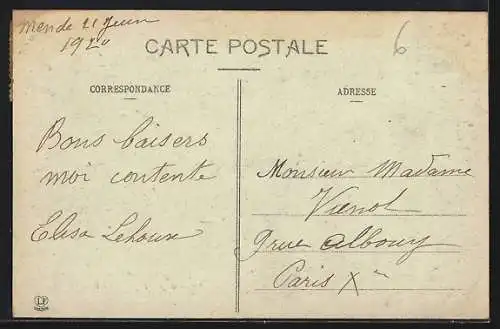 Mende 21 Juin
1920
CARTE POSTALE
6
CORRESPONDANCE
Bons baisers
moi contente
Elisa Lehoux
ADRESSE
Monsieur Madame
Vienot
9 rue Albouy
Paris Xe
LP